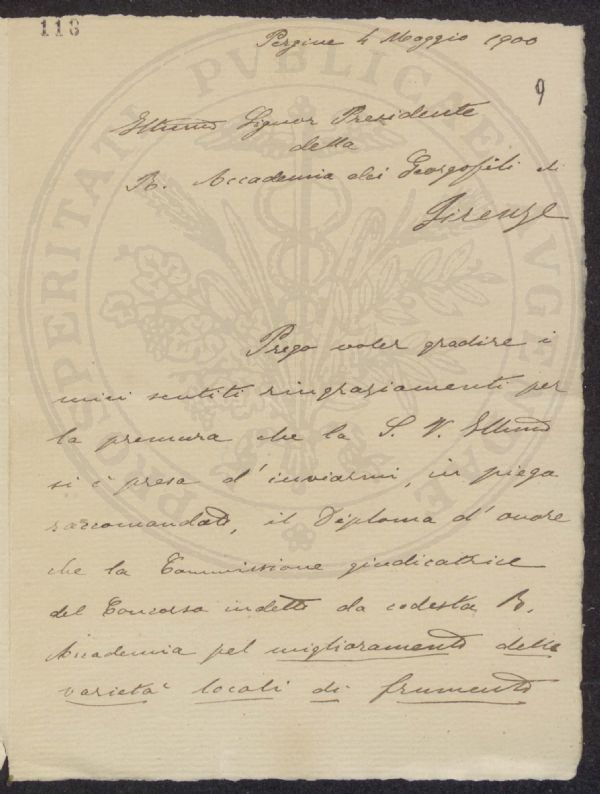 118
Pergine 4 Maggio 1900
9
Illumo Signor Presidente
della
R. Accademia dei Georgofili di
Firenze
Prego voler gradire i
miei sentiti ringraziamenti per
la premura che la S. V. Illuma
si è presa d'inviarmi, in piega
raccomandato, il Diploma d'onore
che la Commissione giudicatrice
del Concorso indetto da codesta R.
Accademia pel miglioramento delle
varietà locali di frumento
PROSPERITATI PVBLICAE AVGENDAE